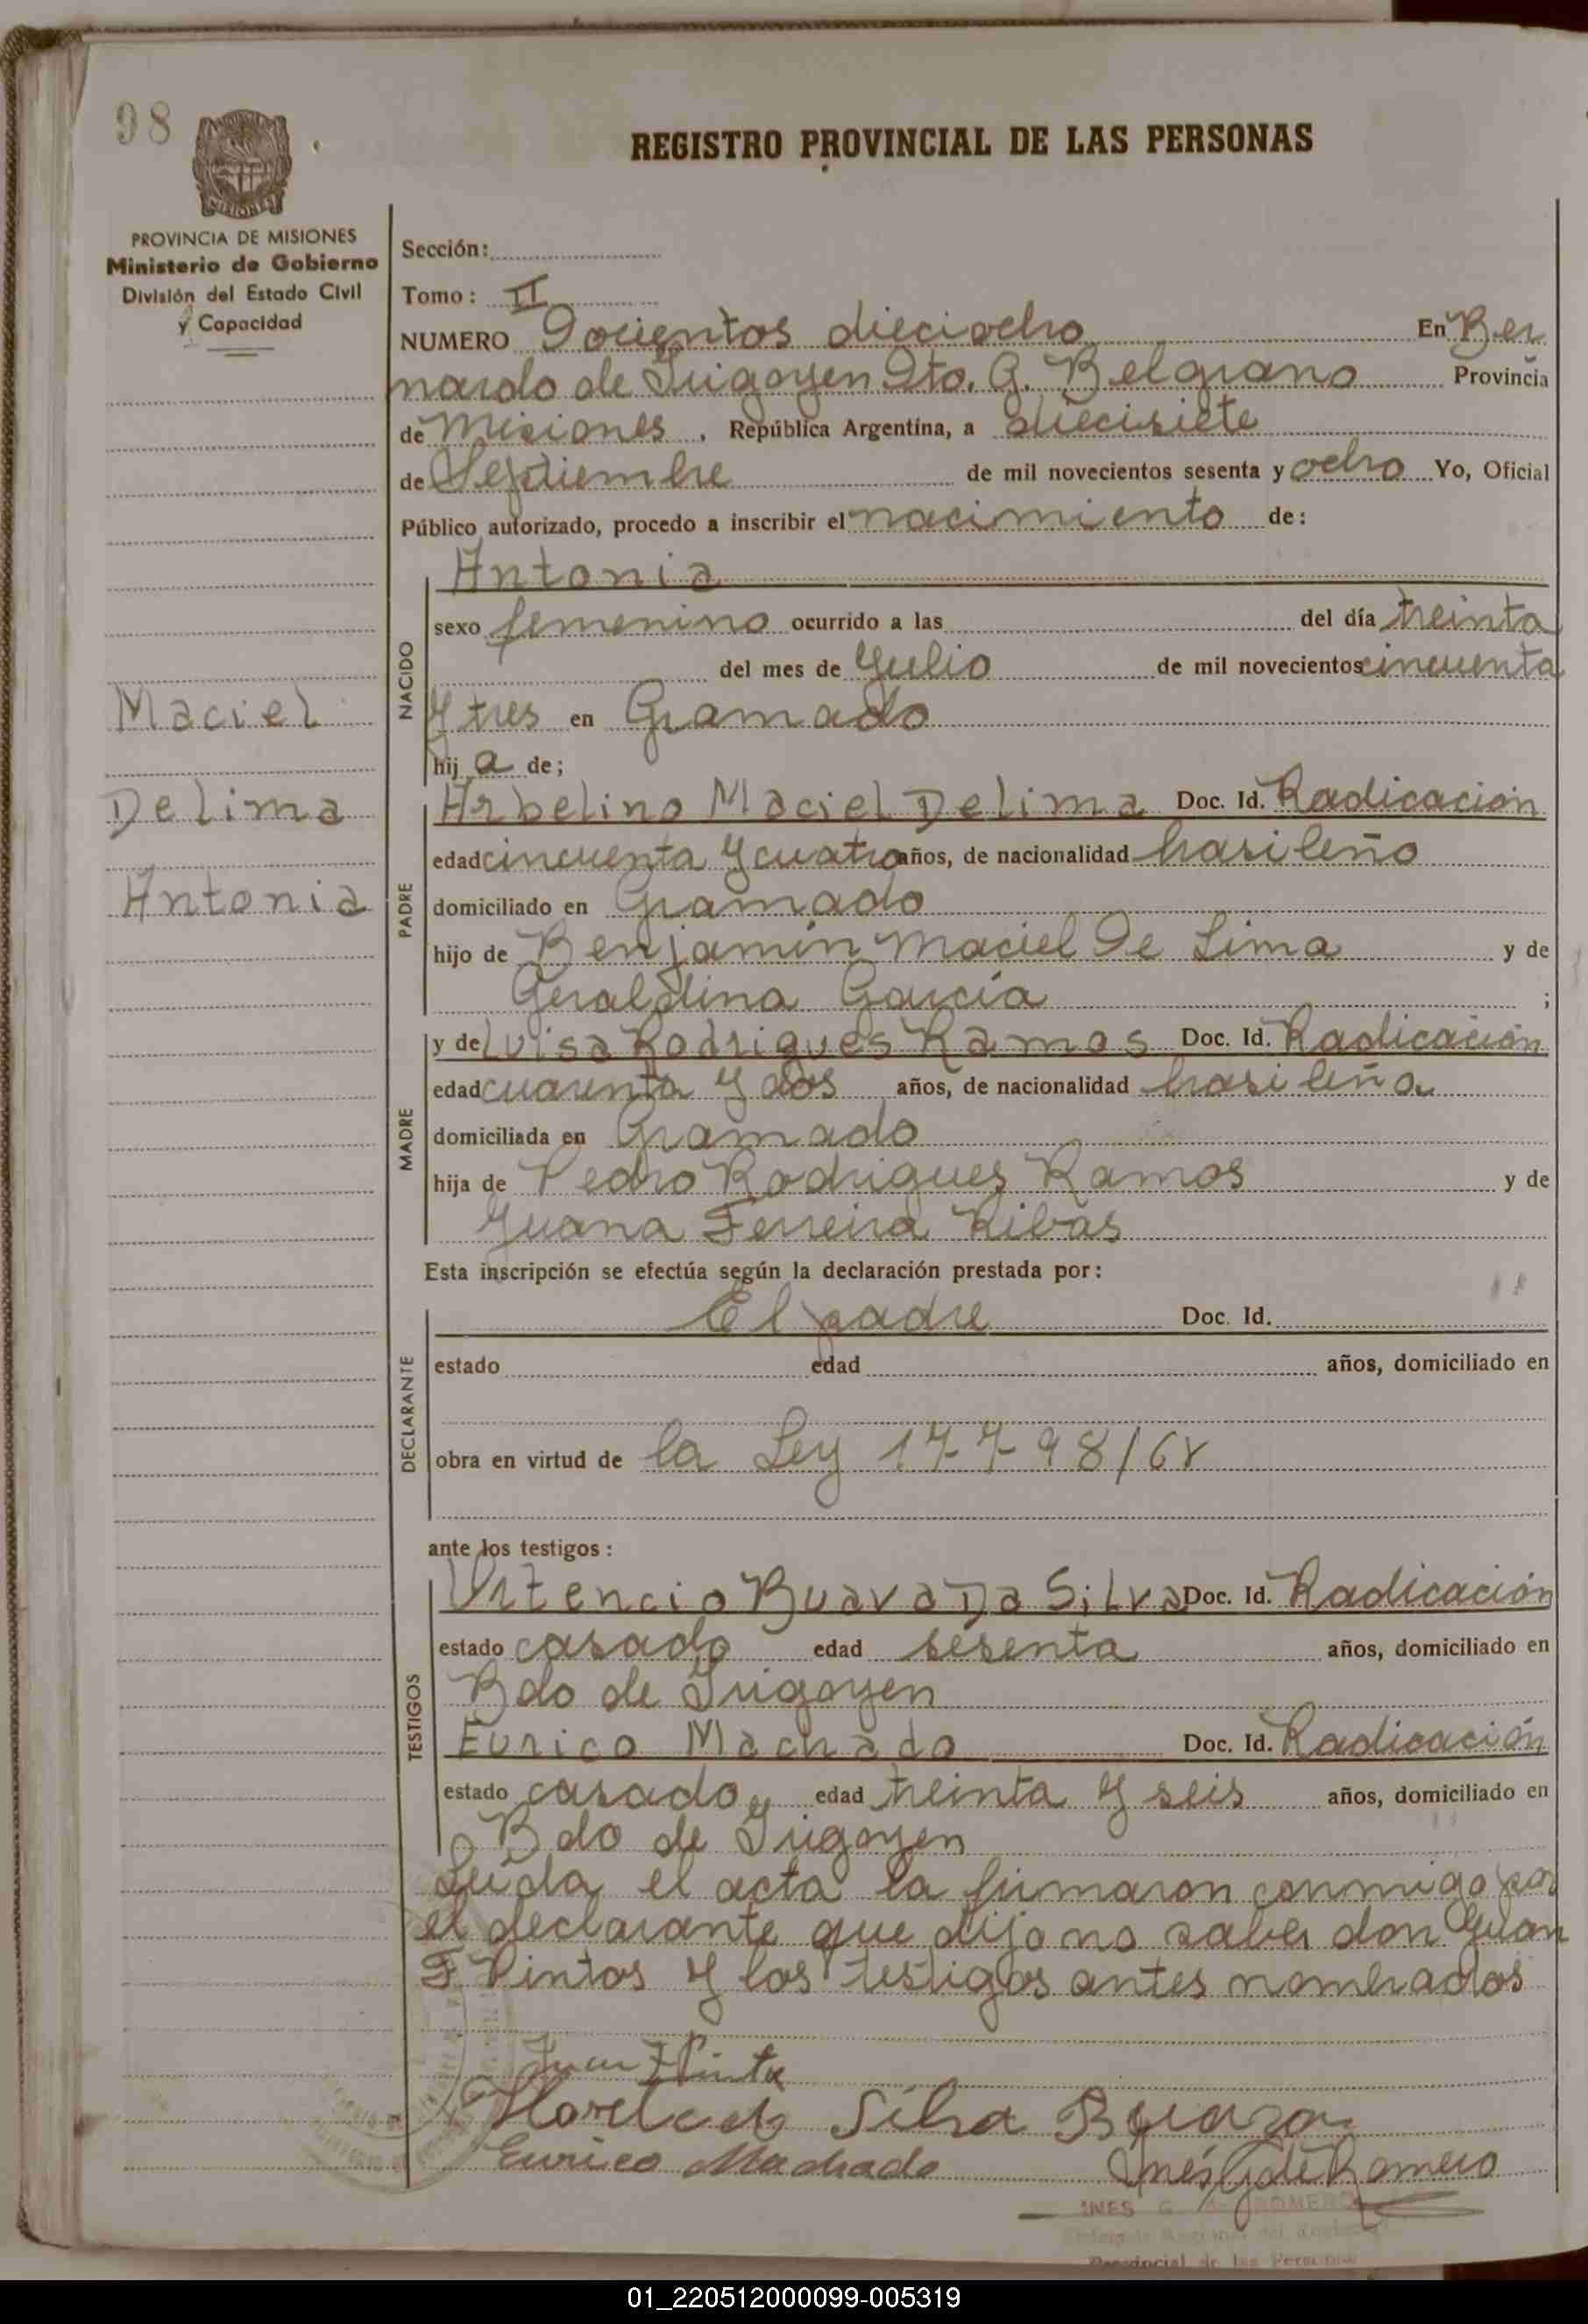 98
REGISTRO PROVINCIAL DE LAS PERSONAS
MISIONES
PROVINCIA DE MISIONES
Ministerio de Gobierno
División del Estado Civil
y Capacidad
Sección:
Tomo: II
NUMERO Docientos dieciocho En Ber
nardo de Irigoyen Dto. G. Belgrano Provincia
de Misiones, República Argentina, a diecisiete
de Septiembre de mil novecientos sesenta y ocho Yo, Oficial
Público autorizado, procedo a inscribir el nacimiento de:
Maciel
Delima
Antonia
NACIDO
Antonia
sexo femenino ocurrido a las del día treinta
del mes de Julio de mil novecientos cincuenta
y tres en Gramado
hij a de;
PADRE
Arbelino Maciel Delima Doc. Id. Radicación
edad cincuenta y cuatro años, de nacionalidad brasileño
domiciliado en Gramado
hijo de Benjamín Maciel De Lima y de
Geraldina García ;
MADRE
y de Luisa Rodrigues Ramos Doc. Id. Radicación
edad cuarenta y dos años, de nacionalidad brasileña
domiciliada en Gramado
hija de Pedro Rodrigues Ramos y de
Juana Ferreira Ribas
Esta inscripción se efectúa según la declaración prestada por:
DECLARANTE
El padre Doc. Id.
estado edad años, domiciliado en
obra en virtud de la Ley 17798/68
ante los testigos:
TESTIGOS
Da Silva Doc. Id. Radicación
estado casado edad sesenta años, domiciliado en
Bdo de Irigoyen
Eurico Machado Doc. Id. Radicación
estado casado edad treinta y seis años, domiciliado en
Bdo de Irigoyen
Leída el acta la firmaron conmigo por
el declarante que dijo no saber don Juan
F Pintos y los testigos antes nombrados
Juan F Pinto
Silva
Eurico Machado Inés G de Romero
INES G. ROMERO
Provincial de las Personas
01_220512000099-005319